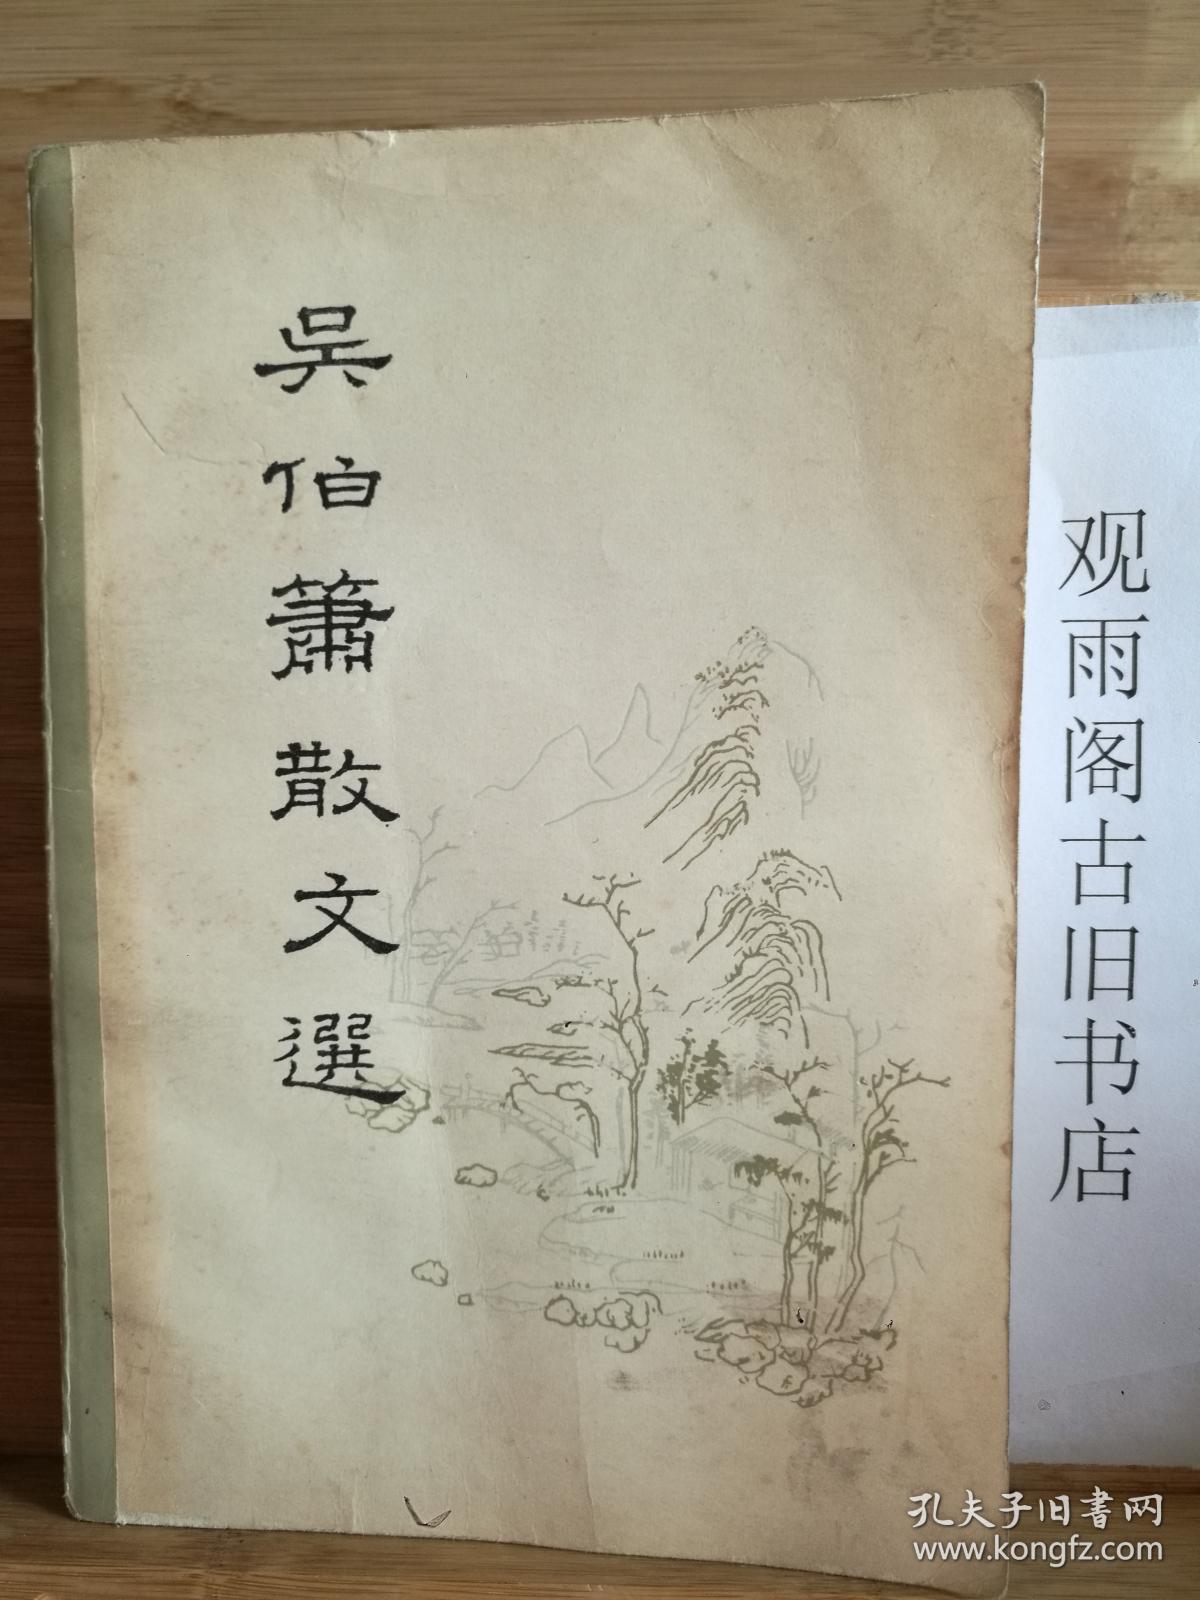 吳伯簫散文選
观雨阁古旧书店
孔夫子旧書网
www.kongfz.com